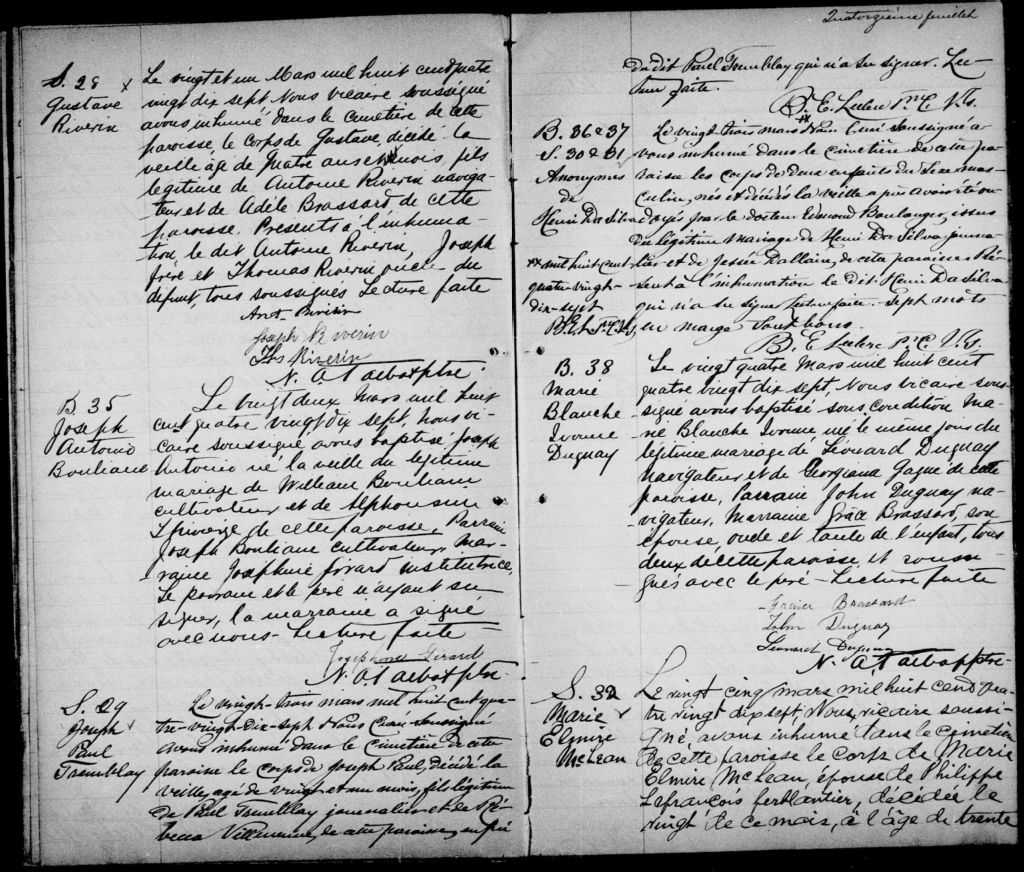 S. 28
Gustave
Riverin
Le vingt et un Mars mil huit cent quatre
vingt dix sept Nous vicaire soussigné
avons inhumé dans le cimetière de cette
paroisse, le corps de Gustave, décédé la
veille âgé de quatre ans et mois, fils
légitime de Antoine Riverin naviga-
teur et de Adèle Brassard de cette
paroisse. Présents à l'inhuma-
tion, le dit Antoine Riverin, Joseph
frère et Thomas Riverin oncle du
défunt, tous soussignés Lecture faite
Ant Riverin
Joseph Riverin
Ths Riverin
N. A Talbot ptre.
B. 35
Joseph
Antonio
Bouliane
Le vingt deux Mars mil huit
cent quatre vingt dix sept, nous vi-
caire soussigné avons baptisé Joseph
Antonio né la veille du légitime
mariage de William Bouliane
cultivateur et de Alphonsine
de cette paroisse. Parrain
Joseph Bouliane cultivateur, Mar-
raine Joséphine Girard institutrice,
Le parrain et le père n'ayant su
signer, la marraine a signé
avec nous - Lecture faite -
Josephine Girard
N. A Talbot ptre.
S. 29
Joseph
Paul
Tremblay
Le vingt-trois mars mil huit cent qua-
tre-vingt-dix-sept Nous Curé soussigné
avons inhumé dans le cimetière de cette
paroisse le corps de Joseph Paul, décédé la
veille, agé de vingt et un mois, fils légitime
de Paul Tremblay journalier et de Ré-
becca Villeneuve, de cette paroisse, en pré
Quatorzième feuillet
du dit Paul Tremblay qui n'a su signer. Lec-
ture faite.
B. E. Leclerc Ptre C. V.
B. 36 & 37
S. 30 & 31
Anonymes
de
Henri Da Silva
Le vingt trois mars ** Nous Curé soussigné a-
vons inhumé dans le cimetière de cette pa-
roisse les corps de deux enfants du sexe mas-
culin, nés et décédés la veille après avoir été on-
doyés par le docteur Edmond Boulanger, issus
du légitime mariage de Henri Da Silva journa-
lier et de Jessée Dallaire, de cette paroisse Pré-
sent à l'inhumation le dit Henri Da Silva
qui n'a su signer Lecture faite. - Sept mots
en marge sont bons.
** mil huit cent
quatre-vingt-
dix-sept
B. E. L. Ptre C.
B. E Leclerc P. C. V.
B. 38
Marie
Blanche
Ivonne
Duguay
Le vingt quatre Mars mil huit cent
quatre vingt dix sept, Nous vicaire sous-
signé avons baptisé sous condition Ma-
rie Blanche Ivonne né le même jour du
légitime mariage de Léonard Duguay
navigateur et de Georgiana Gagné de cette
paroisse, Parrain John Duguay na-
vigateur, Marraine Grâce Brassard, son
épouse, oncle et tante de l'enfant, tous
deux de cette paroisse, et soussi-
gnés avec le père - Lecture faite
Brassard
John Duguay
Léonard Duguay
N. A Talbot ptre.
S. 32
Marie
Elmire
McLean
Le vingt cinq mars mil huit cent qua-
tre vingt dix sept, Nous, vicaire soussi-
gné, avons inhumé dans le cimetière
de cette paroisse le corps de Marie
Elmire McLean, épouse de Philippe
Lefrançois ferblantier, décédée le
vingt de ce mois, à l'âge de trente